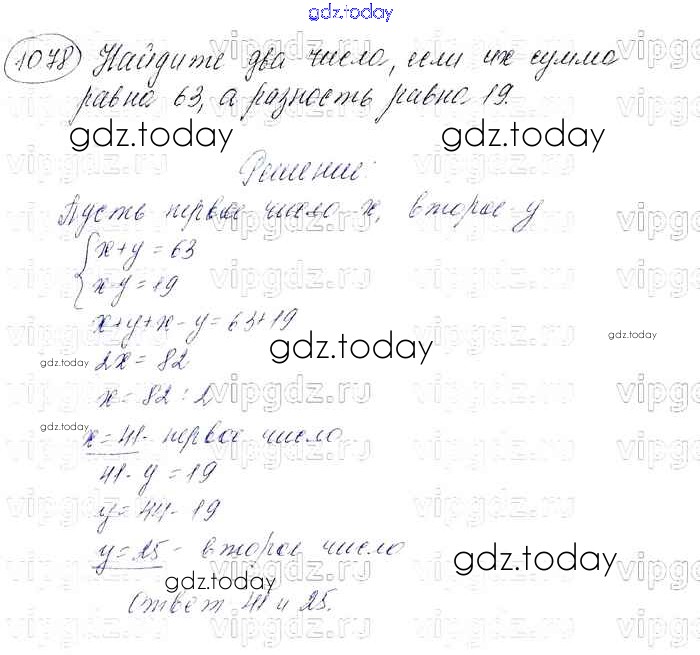 gdz.today
1078 Найдите два числа, если их сумма
равна 63, а разность равна 19.
gdz.today gdz.today
Решение:
Пусть первое число - x, второе - y
{ x+y = 63
x-y = 19
x+y+x-y = 63+19
gdz.today
gdz.today
gdz.today
2x = 82
x = 82 : 2
gdz.today
x = 41 - первое число
41 - y = 19
y = 44 - 19
y = 25 - второе число
gdz.today
gdz.today
Ответ: 41 и 25.